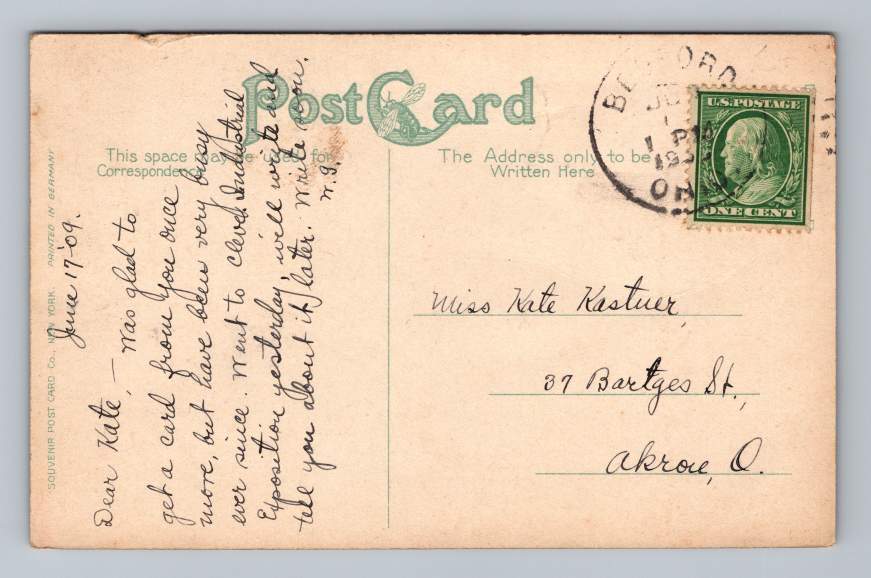 Post Card
This space may be used for
Correspondence
The Address only to be
Written Here
BEDFORD
1 PM
OHIO
U.S. POSTAGE
ONE CENT
SOUVENIR POST CARD CO., NEW YORK. PRINTED IN GERMANY
June 17-'09.
Dear Kate, — Was glad to
get a card from you once
more, but have been very busy
ever since. Went to Cleve. Industrial
Exposition yesterday, will write and
tell you about it later. Write soon.
Miss Kate Kastner
37 Bartges St.,
Akron, O.